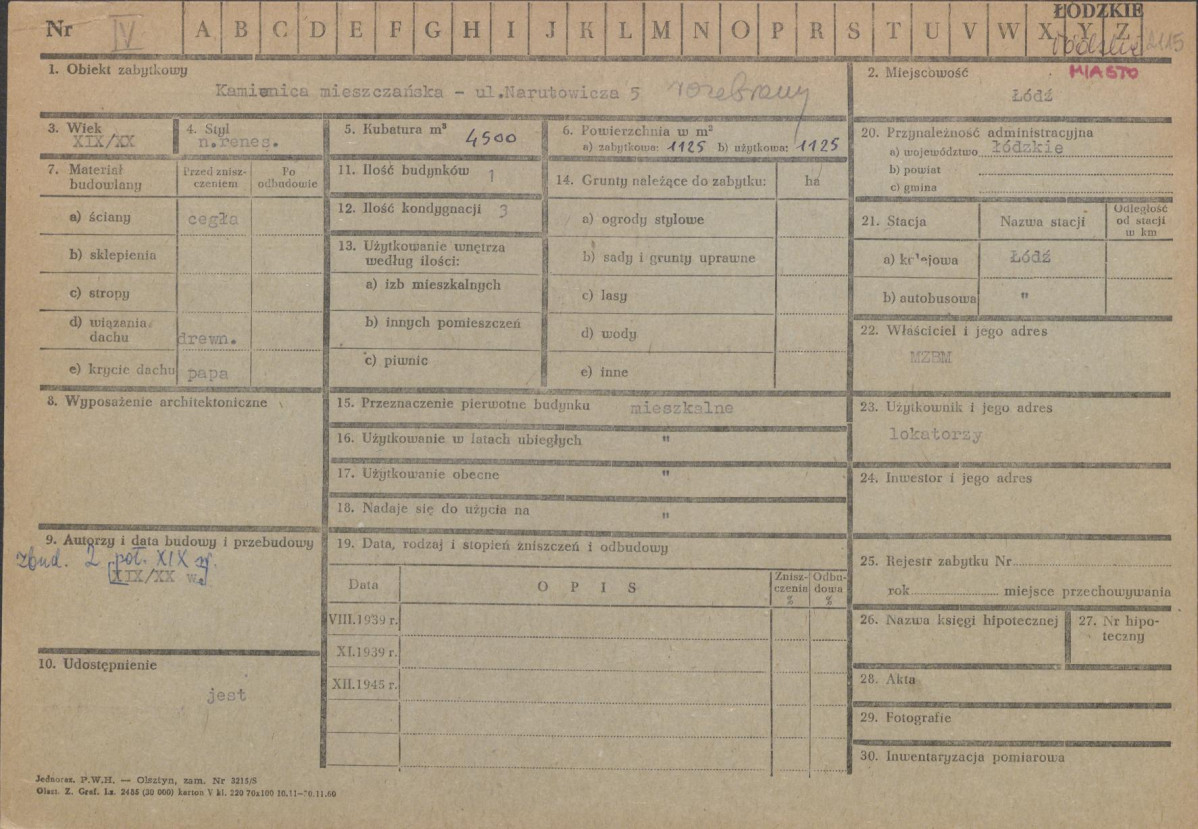 ŁÓDZKIE
Nr IV A B C D E F G H I J K L M N O P R S T U V W X Y Z 2115
MIASTO
1. Obiekt zabytkowy
Kamienica mieszczańska - ul.Narutowicza 5 rozebrany
2. Miejscowość
Łódź
3. Wiek
XIX/XX
4. Styl
n.renes.
5. Kubatura m³ 4500
6. Powierzchnia w m²
a) zabytkowa: 1125 b) użytkowa: 1125
7. Materiał budowlany
Przed znisz-
czeniem
Po
odbudowie
a) ściany cegła
b) sklepienia
c) stropy
d) wiązania
dachu drewn.
e) krycie dachu papa
8. Wyposażenie architektoniczne
9. Autorzy i data budowy i przebudowy
zbud. 2 poł. XIX w.
XIX/XX w.
10. Udostępnienie
jest
11. Ilość budynków 1
12. Ilość kondygnacji 3
13. Użytkowanie wnętrza
według ilości:
a) izb mieszkalnych
b) innych pomieszczeń
c) piwnic
14. Grunty należące do zabytku: ha
a) ogrody stylowe
b) sady i grunty uprawne
c) lasy
d) wody
e) inne
15. Przeznaczenie pierwotne budynku mieszkalne
16. Użytkowanie w latach ubiegłych "
17. Użytkowanie obecne "
18. Nadaje się do użycia na "
19. Data, rodzaj i stopień zniszczeń i odbudowy
Data O P I S
Znisz-
czenia
%
Odbu-
dowa
%
VIII.1939 r.
XI.1939 r.
XII.1945 r.
20. Przynależność administracyjna
a) województwo łódzkie
b) powiat
c) gmina
21. Stacja Nazwa stacji
Odległość
od stacji
w km
a) kolejowa Łódź
b) autobusowa "
22. Właściciel i jego adres
MZBM
23. Użytkownik i jego adres
lokatorzy
24. Inwestor i jego adres
25. Rejestr zabytku Nr
rok miejsce przechowywania
26. Nazwa księgi hipotecznej
27. Nr hipo-
teczny
28. Akta
29. Fotografie
30. Inwentaryzacja pomiarowa
Jednoraz. P.W.H. — Olsztyn, zam. Nr 3215/S
Olszt. Z. Graf. Lz. 2455 (20 000) karton V kl. 220 70x100 10.11—30.11.60